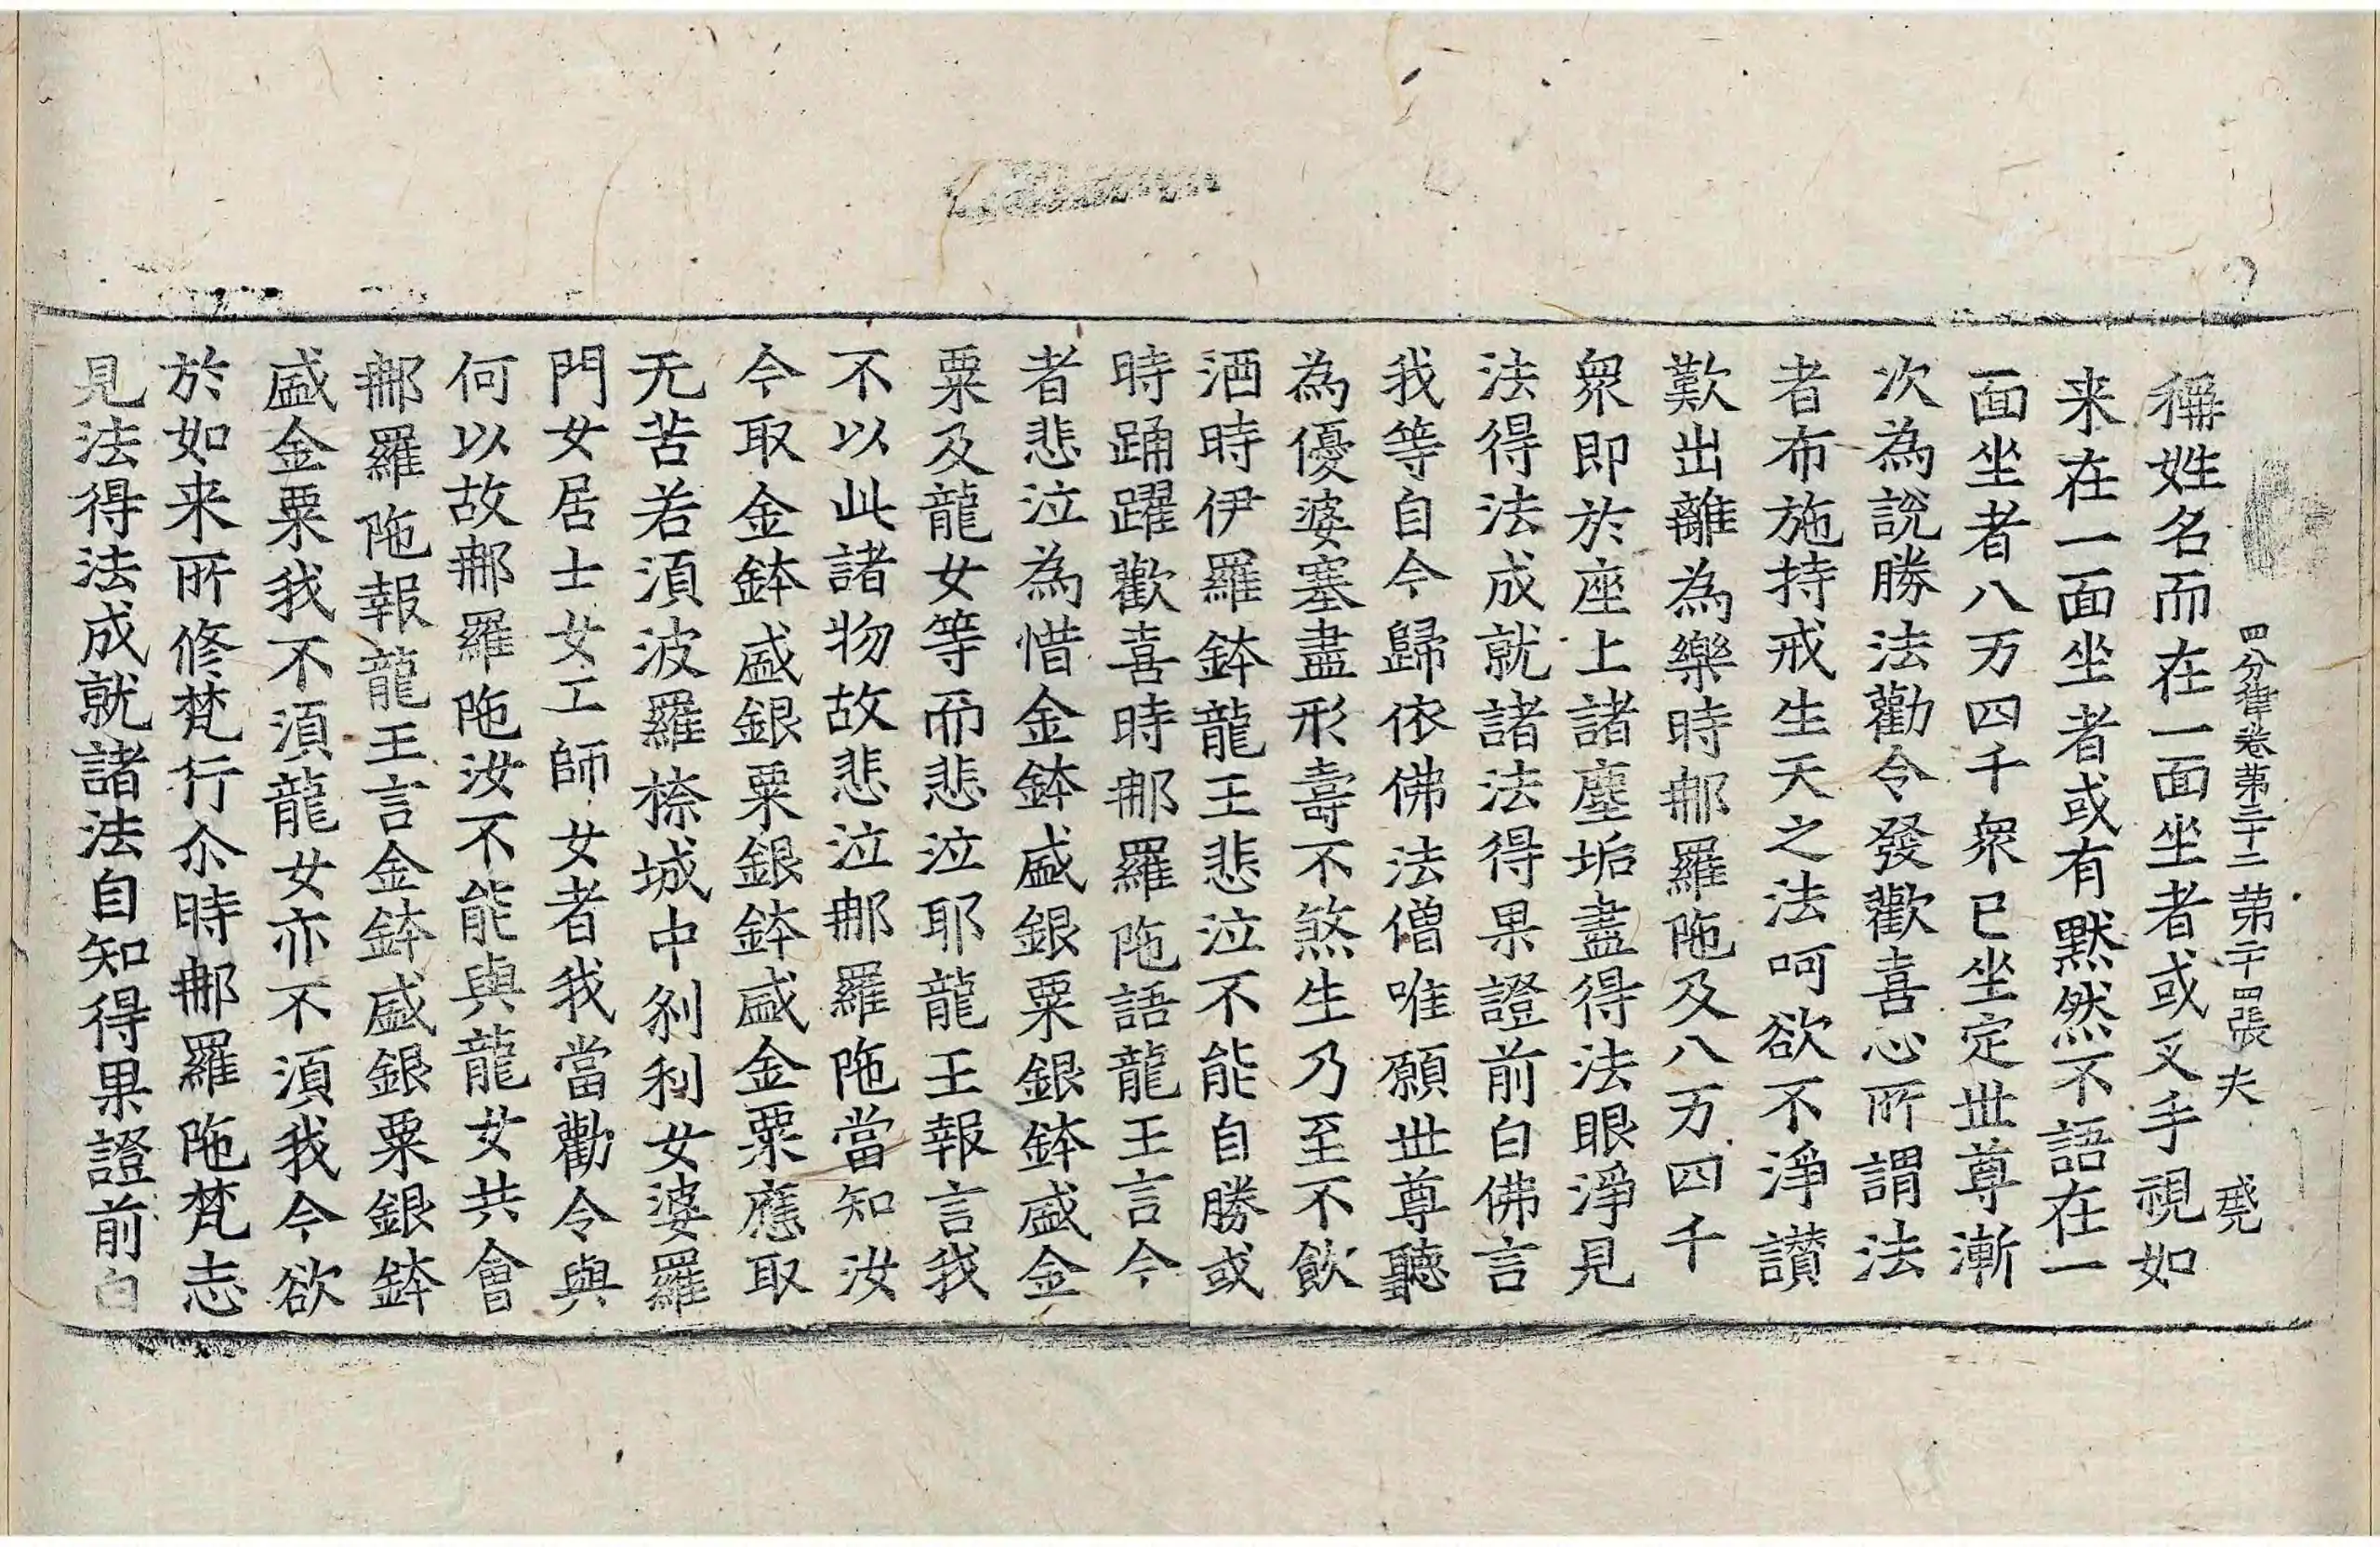 四分律卷第三十二 第二十四張 夫
稱姓名而在一面坐者或叉手視如
来在一面坐者或有黙然不語在一
面坐者八万四千衆已坐定世尊漸
次為說勝法勸令發歡喜心所謂法
者布施持戒生天之法呵欲不淨讃
歎出離為樂時那羅陁及八万四千
衆即於座上諸塵垢盡得法眼淨見
法得法成就諸法得果證前白佛言
我等自今歸依佛法僧唯願世尊聽
為優婆塞盡形壽不煞生乃至不飲
酒時伊羅鉢龍王悲泣不能自勝或
時踊躍歡喜時那羅陁語龍王言今
者悲泣為惜金鉢盛銀粟銀鉢盛金
粟及龍女等而悲泣耶龍王報言我
不以此諸物故悲泣那羅陁當知汝
今取金鉢盛銀粟銀鉢盛金粟應取
无苦若湏波羅㮈城中刹利女婆羅
門女居士女工師女者我當勸令與
何以故那羅陁汝不能與龍女共會
那羅陁報龍王言金鉢盛銀粟銀鉢
盛金粟我不湏龍女亦不湏我今欲
於如来所修梵行尒時那羅陁梵志
見法得法成就諸法自知得果證前白